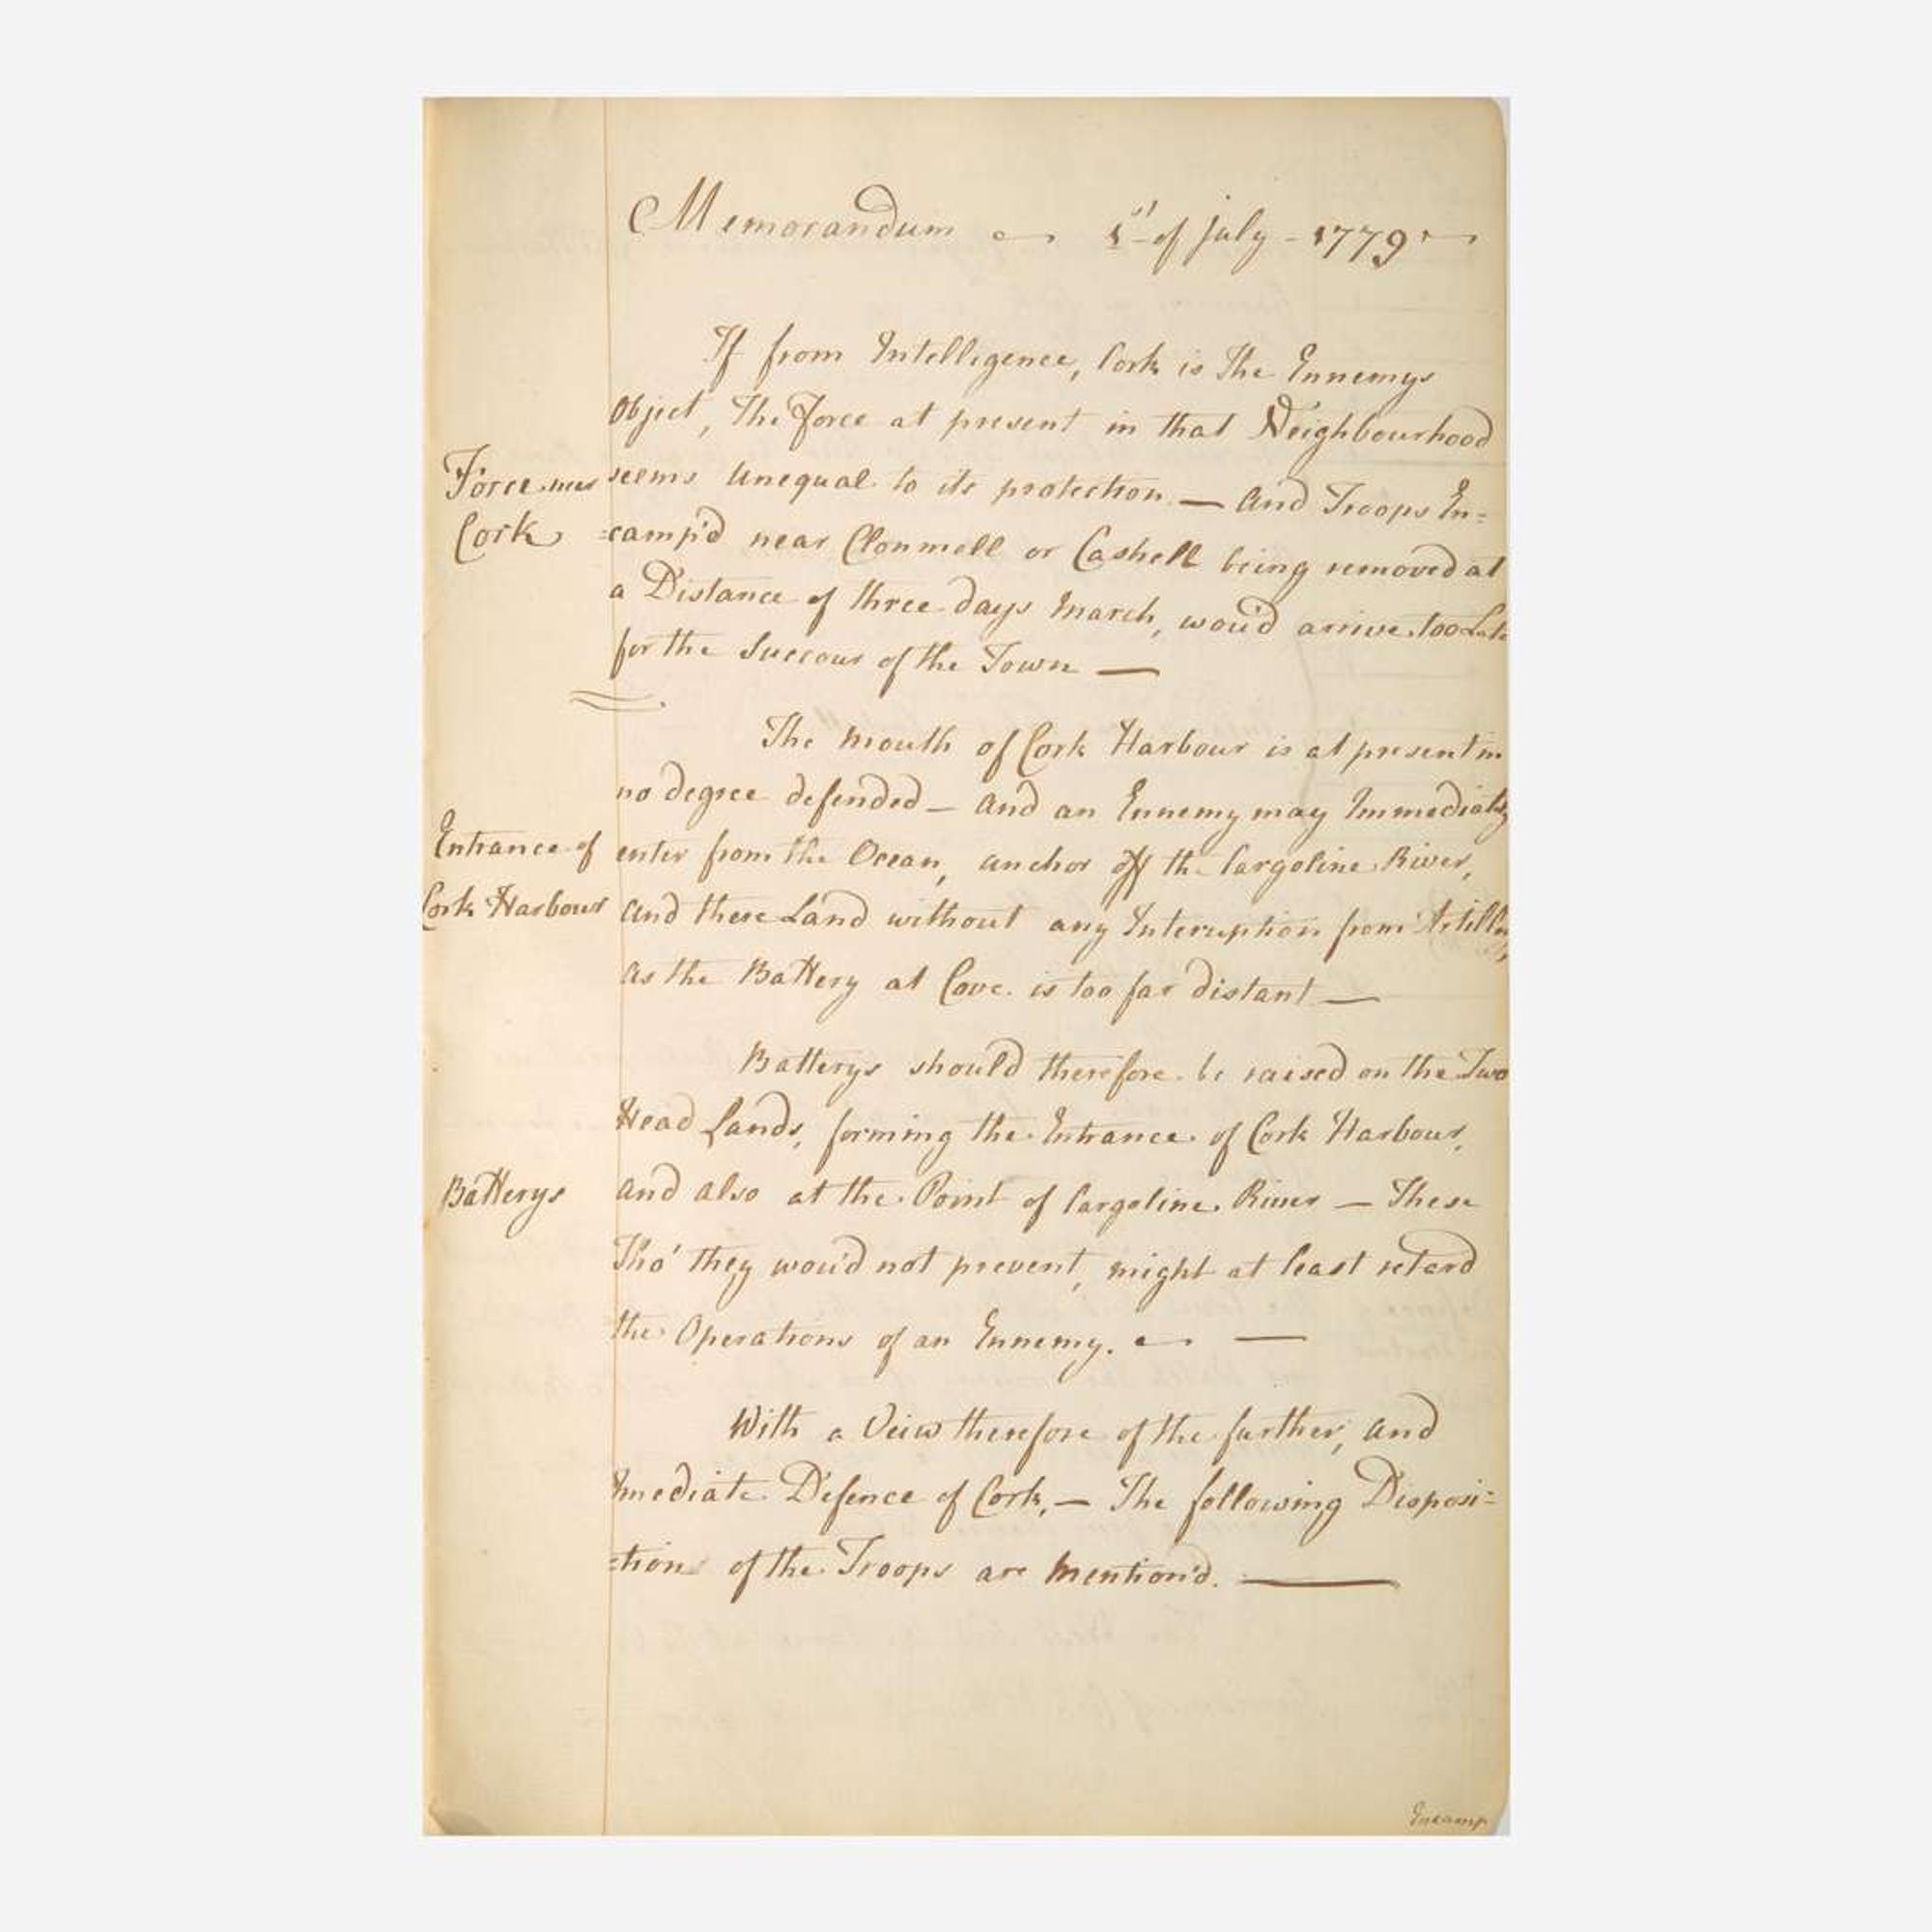 Memorandum — 1st of july - 1779 —
If from Intelligence, Cork is The Ennemys
Object, The Force at present in that Neighbourhood
Force near
seems Unequal to its protection — And Troops En=
Cork
=camp'd near Clonmell or Cashell being removed at
a Distance of three days March, wou'd arrive too Late
for the Succour of the Town —
The Mouth of Cork Harbour is at present in
no degree defended — And an Ennemy may Immediately
Entrance of
enter from the Ocean, anchor off the Cargoline River,
Cork Harbour
And there Land without any Interuption from Artillery,
as the Battery at Cove is too far distant —
Batterys should therefore be raised on the Two
Head Lands, forming the Entrance of Cork Harbour,
Batterys
And also at the Point of Cargoline River — These
Tho' they wou'd not prevent, might at least retard
the Operations of an Ennemy. —
With a Veiw therefore of the further, and
Imediate Defence of Cork, — The following Disposi=
=tions of the Troops are Mention'd. —
Encamp